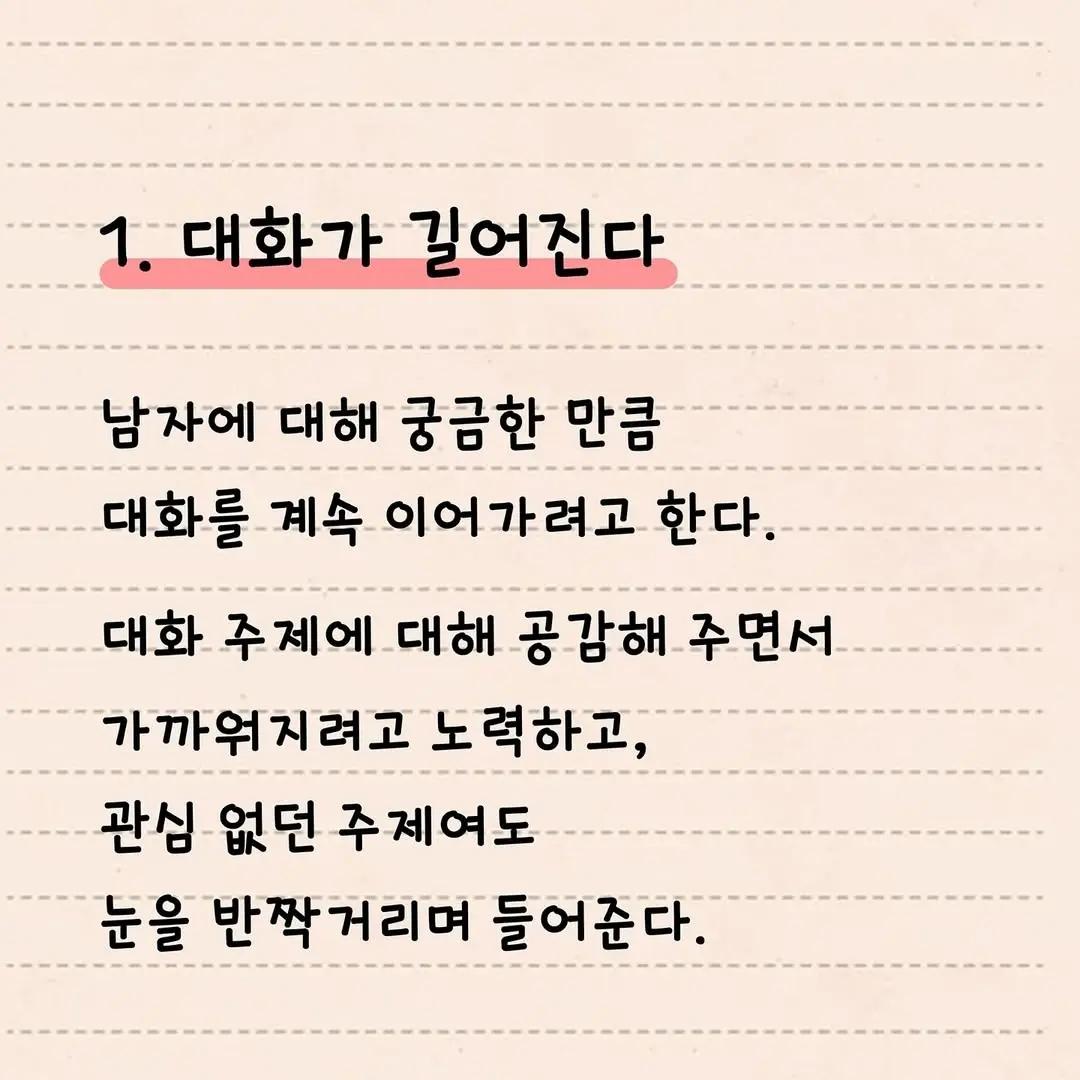 1. 대화가 길어진다
남자에 대해 궁금한 만큼
대화를 계속 이어가려고 한다.
대화 주제에 대해 공감해 주면서
가까워지려고 노력하고,
관심 없던 주제여도
눈을 반짝거리며 들어준다.